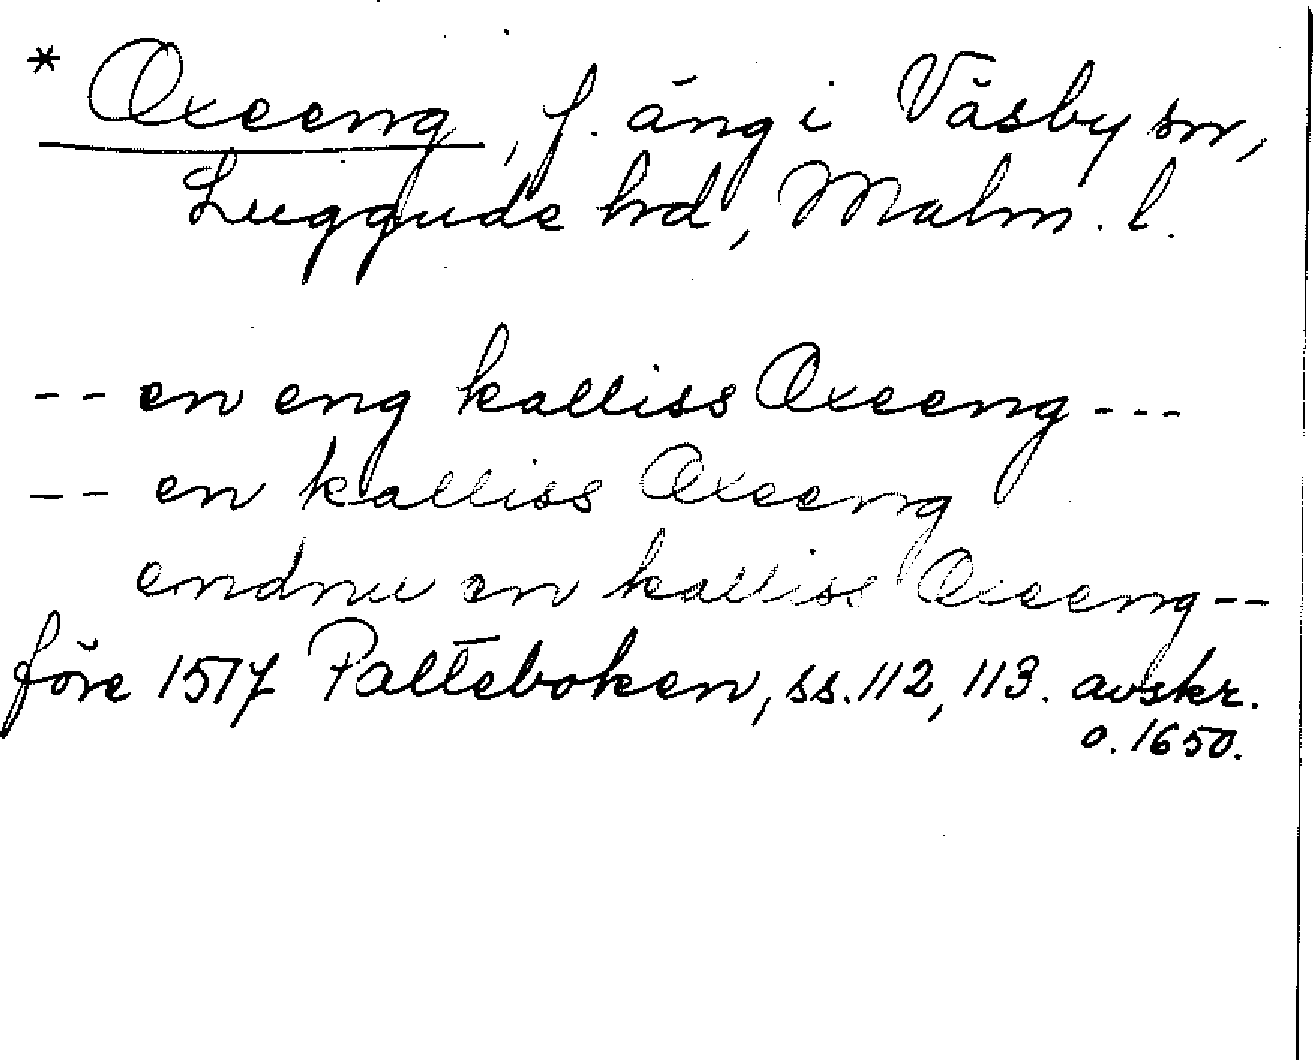 * Oxeeng, f. äng i Väsby sn,
Luggude hd, Malm. l.
-- en eng kalliss Oxeeng ---
-- en kalliss Oxeeng
endnu en kalliss Oxeeng --
före 1517 Palteboken, ss. 112, 113. avskr.
o. 1650.